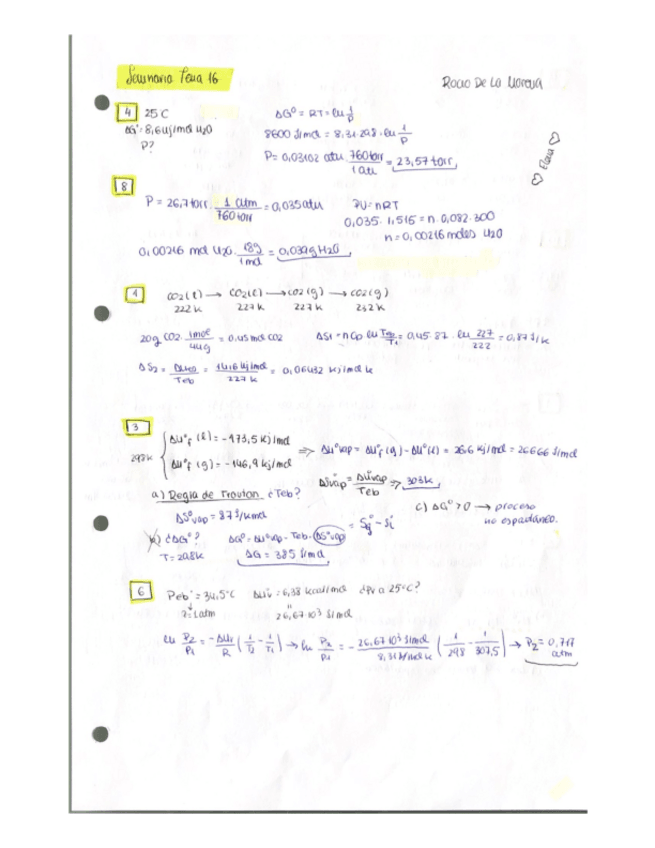 Seminario Tema 16
Rocío De La Morena
4 25 C
ΔG°= 8,6 kJ/mol H2O
P?
ΔG° = RT· ln 1/P
8600 J/mol = 8,31·298· ln 1/P
P= 0,03102 atm · 760 torr / 1 atm = 23,57 torr
Elena
8
P = 26,7 torr · 1 atm / 760 torr = 0,035 atm
PV = nRT
0,035 · 1,515 = n · 0,082 · 300
n = 0,00216 moles H2O
0,00216 mol H2O · 18g / 1 mol = 0,039g H2O
CO2(l) → CO2(l) → CO2(g) → CO2(g)
222 K 227 K 227 K 232 K
20g CO2 · 1mol / 44g = 0,45 mol CO2
ΔS1 = n Cp ln Teb/T1 = 0,45 · 87 · ln 227/222 = 0,87 J/K
Teb
227 K
3
298K
ΔH°f (l) = -173,5 kJ/mol
ΔH°f (g) = -146,9 kJ/mol
⇒ ΔH°vap = ΔH°f (g) - ΔH°(l) = 26,6 kJ/mol = 26666 J/mol
a) Regla de Trouton ¿Teb?
ΔS°vap = ΔH°vap / Teb ⇒ 303K
ΔS°vap = 87 J/kmol
c) ΔG° > 0 → proceso
no espontáneo.
b) ¿ΔG°?
T = 298K
ΔG° = ΔH°vap - Teb · ΔS°vap = S°g - S°l
ΔG = 385 J/mol
6
Peb = 34,5°C ΔHv = 6,38 kcal/mol ¿Pv a 25°C?
1 atm
26,67·10³ J/mol
ln P2/P1 = - ΔHv/R (1/T2 - 1/T1) → ln P2/P1 = - 26,67·10³ J/mol / 8,31 J/molK (1/298 - 1/307,5) → P2 = 0,717
atm